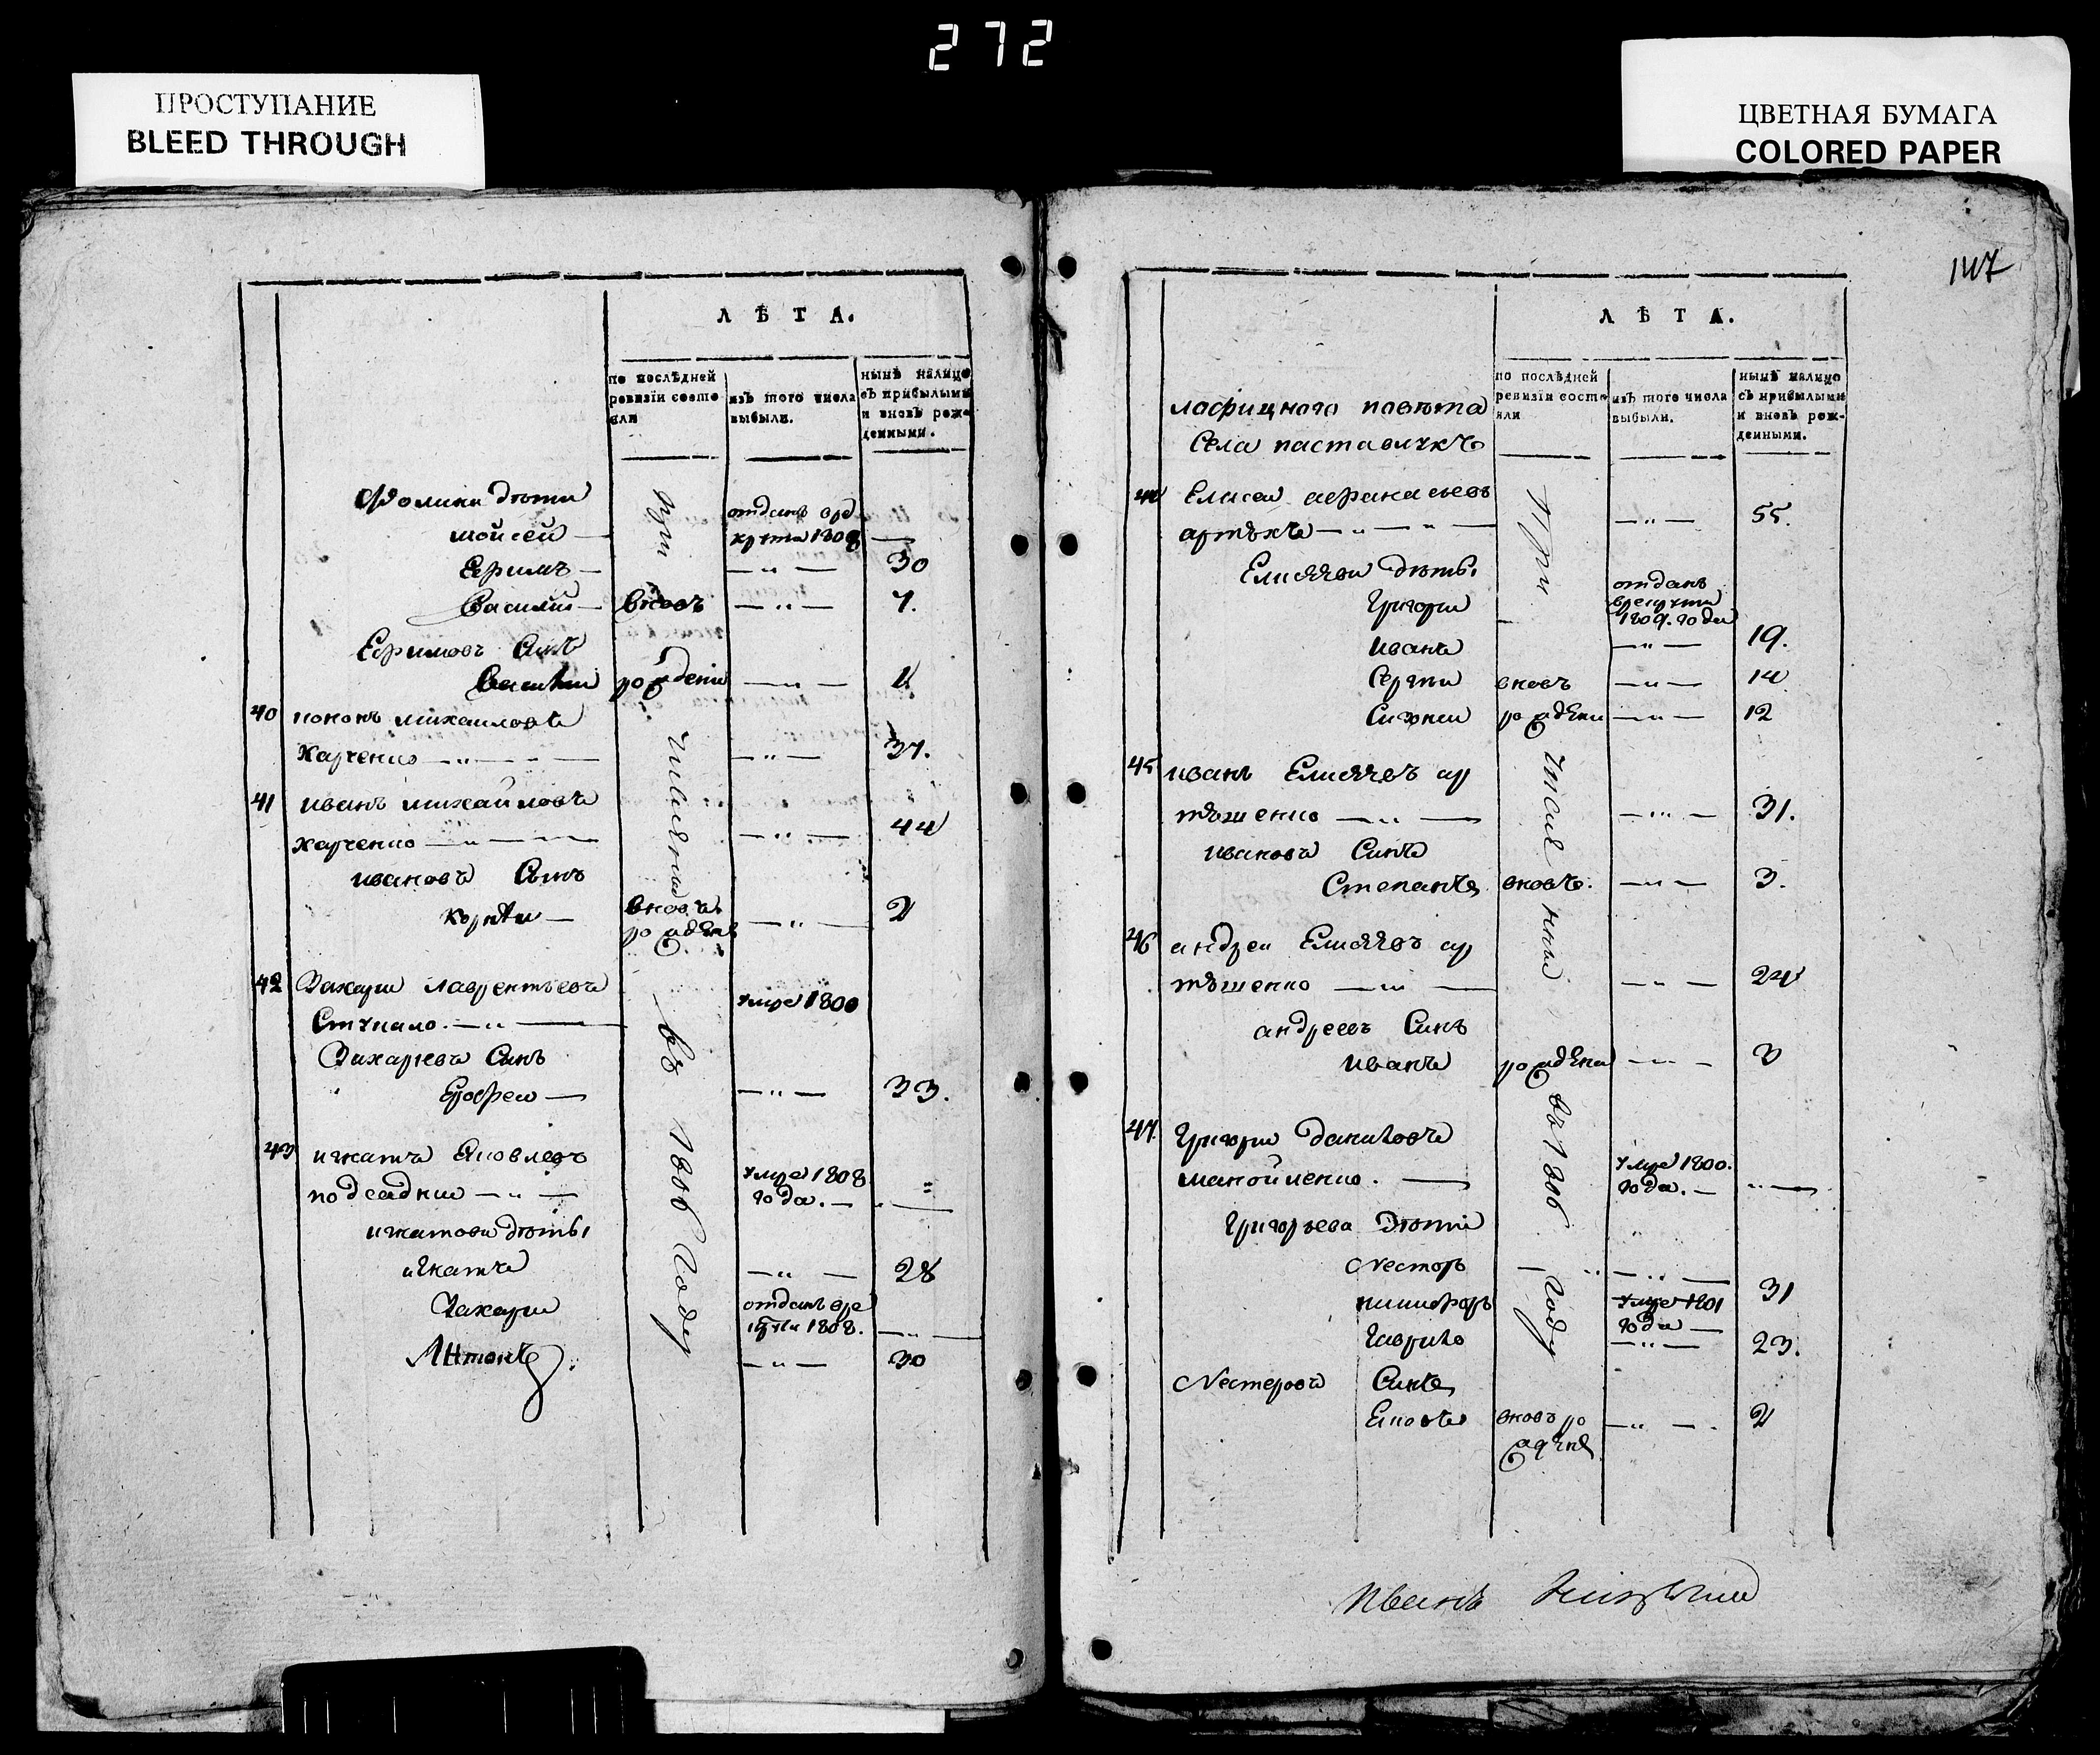 272
ПРОСТУПАНИЕ
BLEED THROUGH
ЦВЕТНАЯ БУМАГА
COLORED PAPER
ЛѢТА.
по послѣдней ревизіи состояли
изъ того числа выбыли.
нынѣ налицо съ прибылыми и вновь рожденными.
Фомини дѣти
отданъ в ре
мойсей —
круты 1808 —
Ефимъ — — " — 30
Василий — вновь — " — 7.
Ефимовъ Синъ
рождени — " — 1
40 кононъ михаиловъ
Харченко — " — — " — 37.
41 иванъ михайловъ
харченко — " — — " — 44
ивановъ Сынъ
корнѣи — вновь рожденъ — " — 2
42 Захари лаврентьевъ
умре 1800
Стукало. — " —
Захариевъ Синъ
Ерофеи — — " — 33.
43 игнатъ Яковлевъ
умре 1808
подсадни — " — года. — —
игнатови дѣты
игнатъ — " — 28
Захари отданъ в рекруты 1808. — " —
Антонъ. — " — 30
числяни
въ 1806 году
147
ЛѢТА.
по послѣдней ревизіи состояли
изъ того числа выбыли.
нынѣ налицо съ прибылыми и вновь рожденными.
лофицкого повѣта
Села паставикъ
44 Елисеи афанасиевъ
артюхъ — " — " — — " — 55.
Елисѣеви дѣты
Григори отданъ врекруты 1809. года
иванъ — " — 19.
Сергѣи вновь — " — 14
рождени — " — 12
45 иванъ Елисѣевъ ар
тюшенко — " — — " — 31.
ивановъ Синъ
Степанъ вновъ. — " — 3.
46 андреи Елисѣевъ ар
тюшенко — " — — " — 24
андреевъ Синъ
иванъ рождени — " — 3
47 Григори даниловъ
умре 1800.
манойленко. — года. — " —
Григорьева дѣти
Несторъ — " — 31
никифоръ умре 1801 года —
Гаврило — " — 23.
Нестеровъ Синъ
Яковъ вновъ рожденъ — " — 2
При
числяни
въ 1806
году
Иванъ